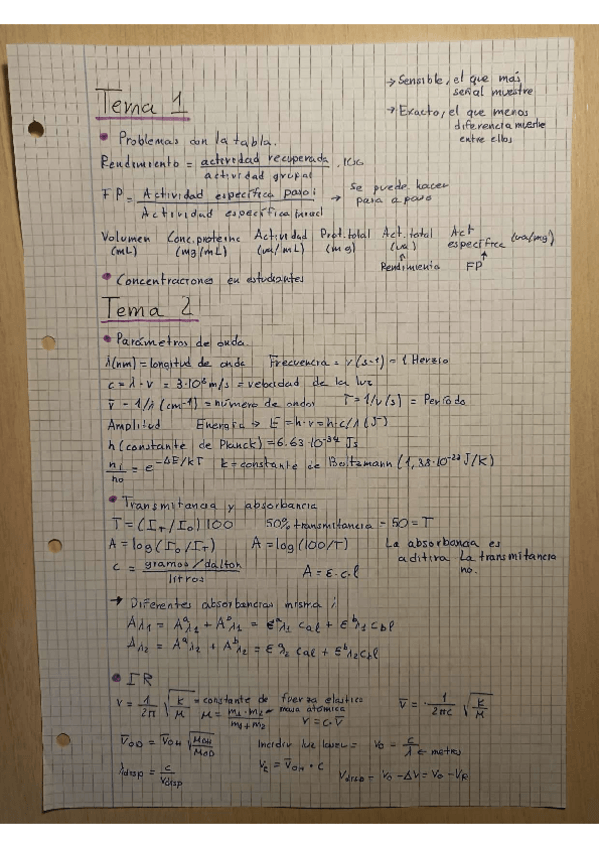 Tema 1
→ Sensible, el que más
señal muestre
→ Exacto, el que menos
diferencia muestre
entre ellos
• Problemas con la tabla.
Rendimiento = actividad recuperada / actividad grupal · 100
FP = Actividad específica paso i / Actividad específica inicial → Se puede hacer
paso a paso
Volumen (mL) Conc. proteínc (mg/mL) Actividad (ua/mL) Prot. total (mg) Act. total (ua) Act específica (ua/mg)
Rendimiento FP
• Concentraciones en estudiantes
Tema 2
• Parámetros de onda.
λ(nm) = longitud de onda Frecuencia = ν (s-1) = 1 Herzio
c = λ · ν = 3·10⁸ m/s = velocidad de la luz
ν̅ = 1/λ (cm⁻¹) = número de ondas T = 1/ν (s) = Período
Amplitud Energía → E = h·ν = h·c/λ (J)
h (constante de Planck) = 6.63·10⁻³⁴ Js
ni/no = e^-ΔE/kT k = constante de Boltzmann (1,38·10⁻²³ J/K)
• Transmitancia y absorbancia
T = (I_T / I_o) 100 50% transmitancia = 50 = T
A = log (I_o / I_T) A = log (100/T) La absorbancia es
aditiva la transmitancia
no.
c = gramos/dalton / litros A = ε·c·l
→ Diferentes absorbancias misma i
Aλ1 = Aᵃλ1 + Aᵇλ1 = εᵃλ1 Ca l + εᵇλ1 Cb l
Aλ2 = Aᵃλ2 + Aᵇλ2 = εᵃλ2 Ca l + εᵇλ2 Cb l
• IR
ν = 1/2π √(k/μ) = constante de fuerza elástica ν̅ = 1/2πc √(k/μ)
μ = m1·m2 / m1+m2 - masa atómica
ν = c·ν̅
ν̅OD = ν̅OH √(μOH/μOD) Incidir luz láser = ν0 = c/λ ← metros
λdisp = c/νdisp νE = ν̅OH · c νdisp = ν0 - Δν = ν0 - νR